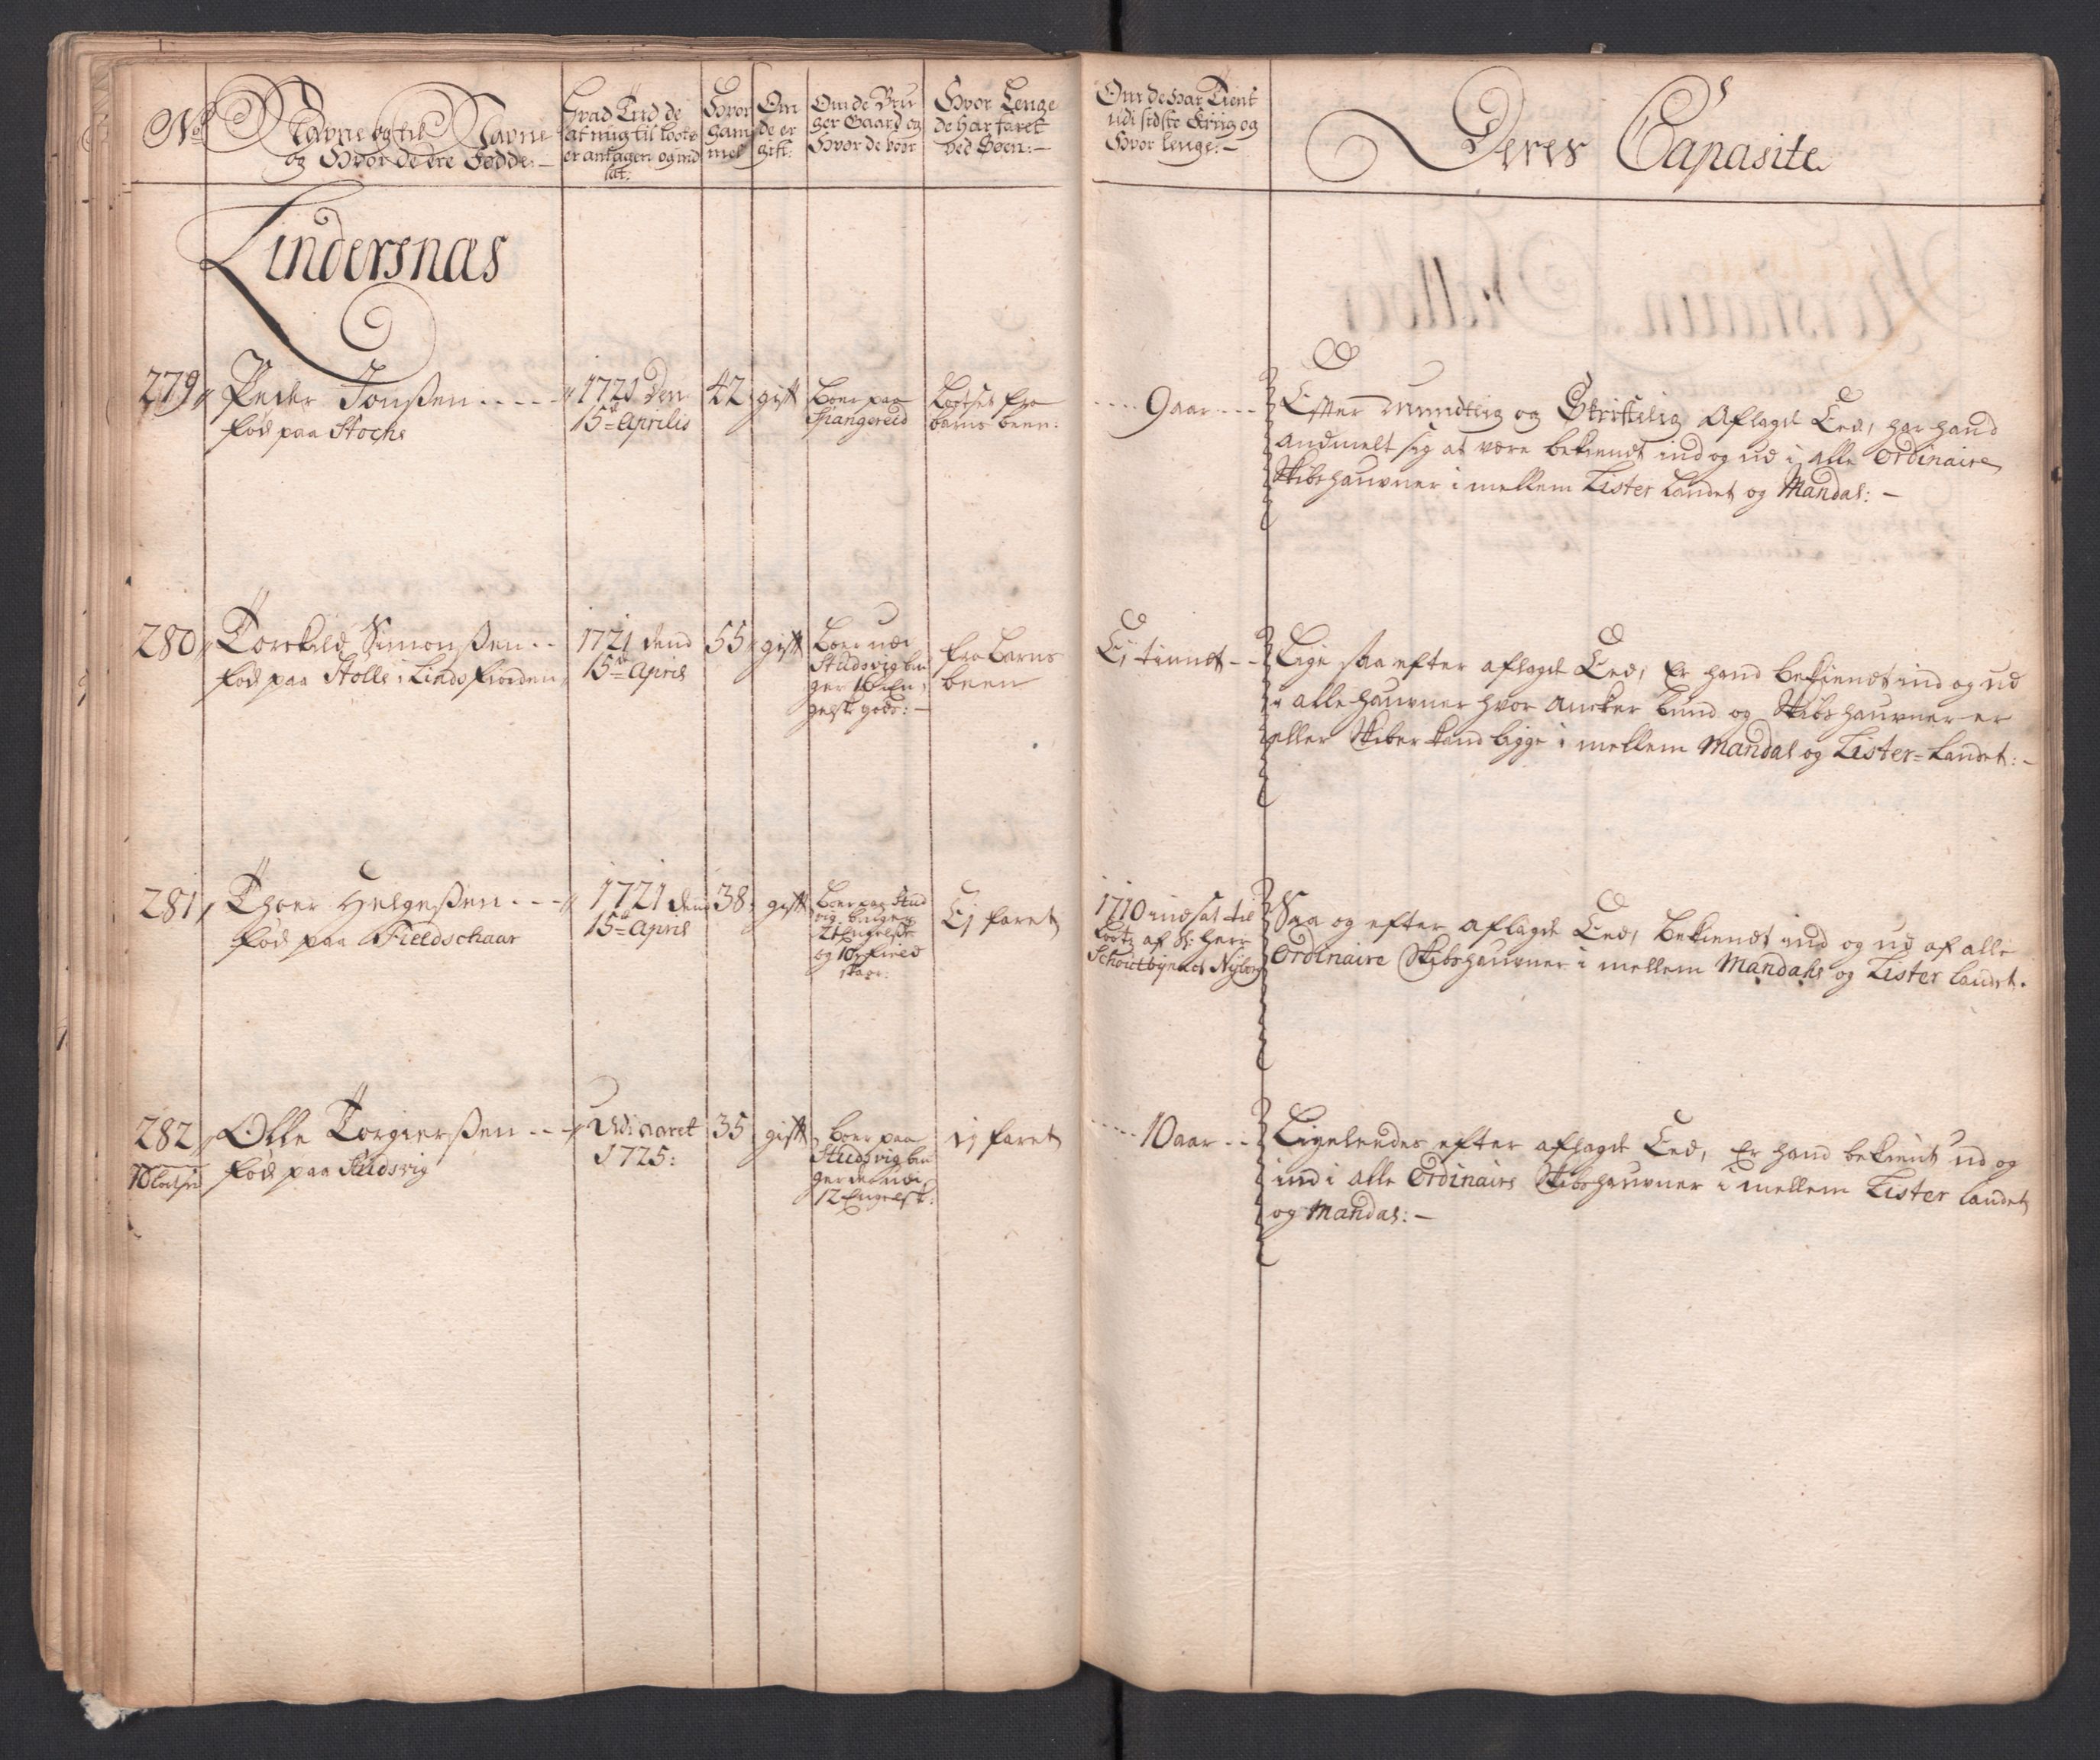 No
Nafvne og til Nafvne
og Hvor de ere Fødde:-
Hvad Tiid de
af mig til Loots
er antagen og ind
sat:
Hvor
gam
mel
Om
de er
gift:
Om de Bru
ger Gaard og
Hvor de boer
Hvor Lenge
de har faret
ved Søen:-
Om de har Tient
udi sidste Kriig og
Hvor lenge:-
Deres Capasite
Lindersnæs
279
Peder Jonßen
fød paa Stoche
1721 den
15de Aprilis
42
gift
Boer paa
Spangereid
Lootset fra
barns been:
9 aar
Efter Mundtlig og Skriftelig Aflagde Eed, har hand
andmelt sig at være bekiendt ind og ud i alle Ordinaire
Skibshaufner i mellem Lister Landet og Mandal:-
280
Torkild Simonßen
fød paa Stolle i Lindsfiorden
1721 dend
15de April
55
gift
Boer ved
Studsvig bru
ger 16 En
gelsk gods:-
fra barns
been
Ej tiendt
Lige saa efter aflagde Eed, Er hand bekiendt ind og ud
i alle haufner hvor Ancker bund og Skibshaufner er
eller Skiber kand ligge i mellem Mandal og Lister=Landet:-
281
Thoer Helgeßen
fød paa Fieldschaar
1721 den
15de April
38
gift
Boer paa Stud
vig, bruger
2 Engelske
og 10 i Field
skaar:
Ej faret
1710 indsat til
Lootz af Sl: Herr
Schoutbynacht Nÿborg
Saa og efter aflagde Eed, bekiendt ind og ud af alle
Ordinaire Skibshaufner i mellem Mandahl og Lister landet.
282
10 Lootser
Olle Torgierßen
fød paa Studsvig
Udi aaret
1725:
35
gift
boer paa
Studsvig bru
ger der ved
12 Engelsk:
ej faret
10 aar
Ligeleedes efter aflagde Eed, Er hand bekiendt ud og
ind i alle Ordinaire Skibshaufner i mellem Lister landet
og Mandal:-